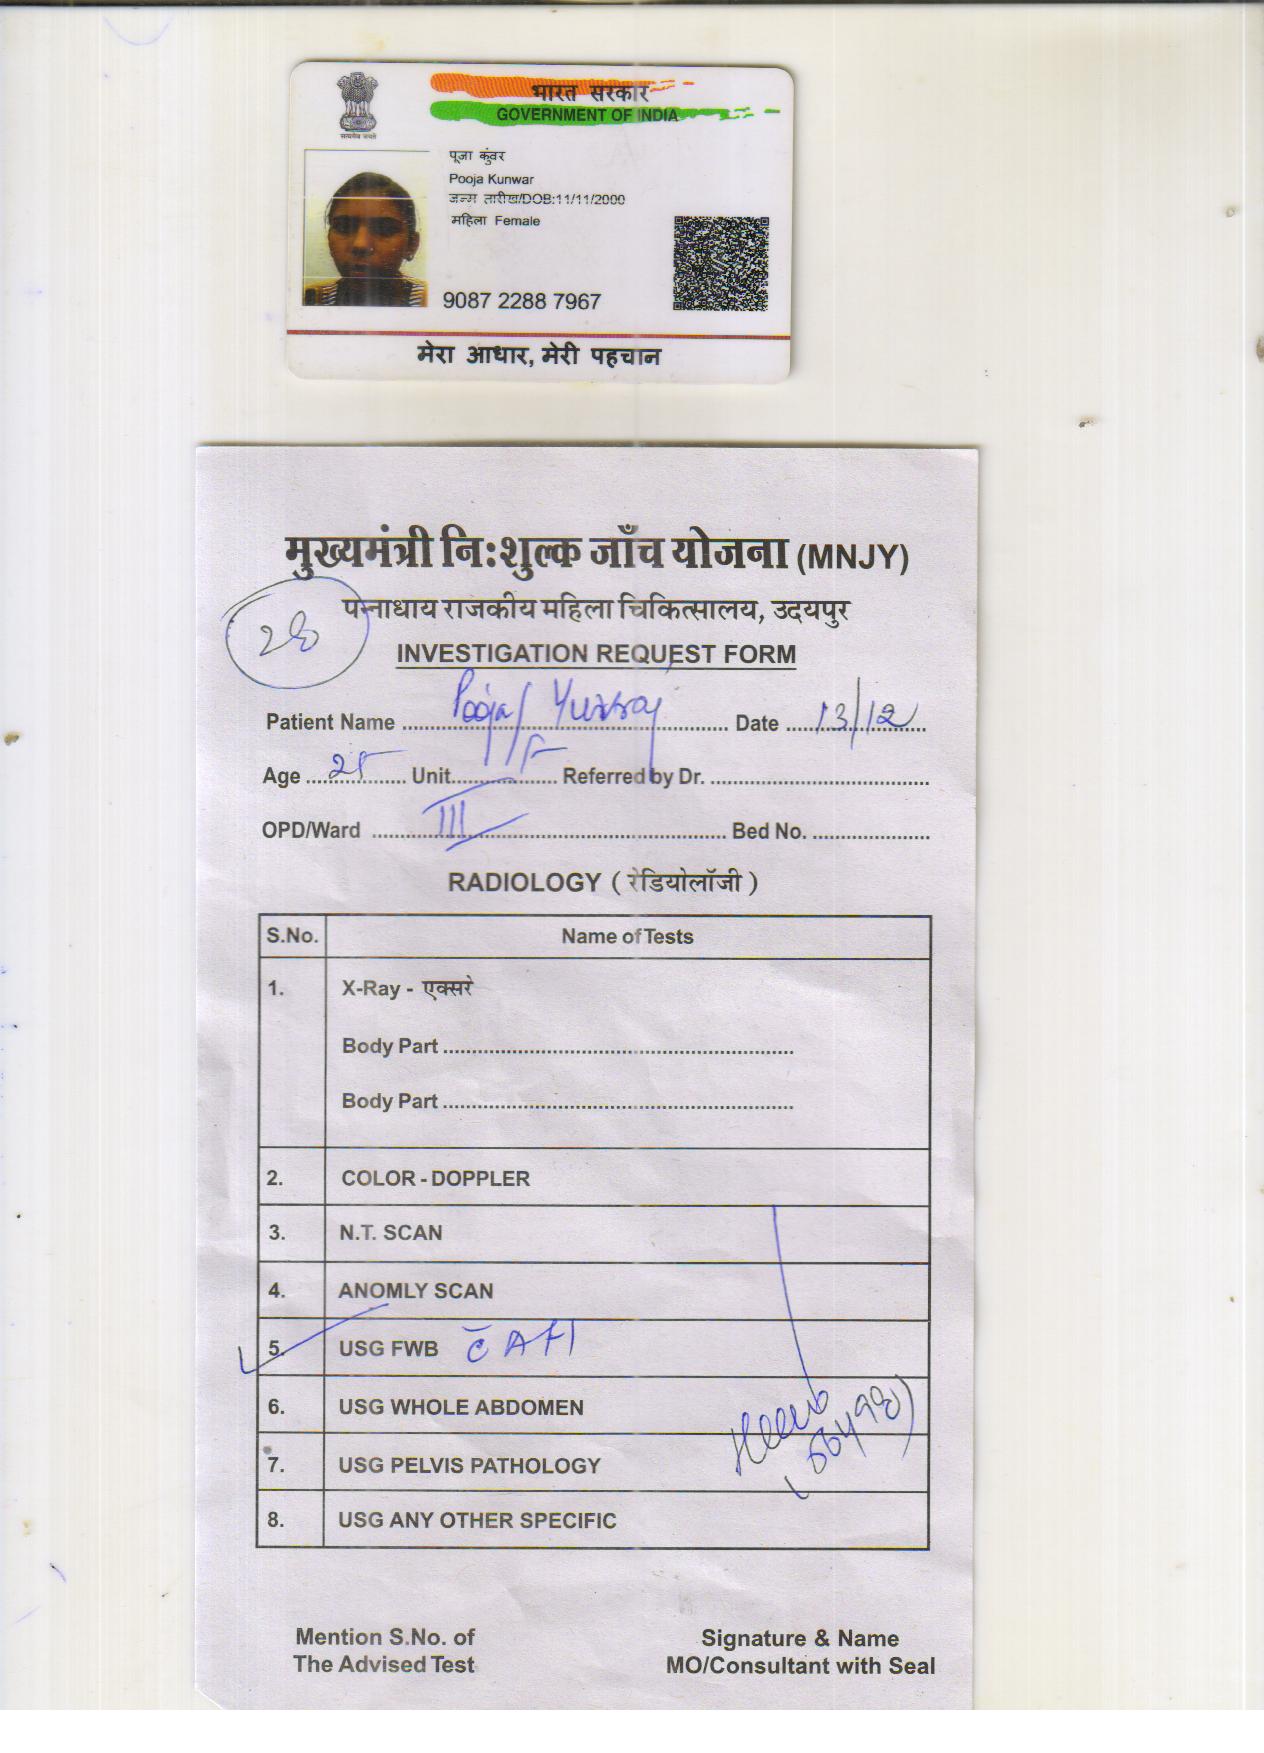 भारत सरकार
GOVERNMENT OF INDIA
सत्यमेव जयते
पूजा कुंवर
Pooja Kunwar
जन्म तारीख/DOB:11/11/2000
महिला Female
9087 2288 7967
मेरा आधार, मेरी पहचान
मुख्यमंत्री नि:शुल्क जाँच योजना (MNJY)
पन्नाधाय राजकीय महिला चिकित्सालय, उदयपुर
28
INVESTIGATION REQUEST FORM
Patient Name Pooja / Yuvraj Date 13/12
Age 25 Unit Referred by Dr.
OPD/Ward III Bed No.
RADIOLOGY ( रेडियोलॉजी )
S.No. Name of Tests
1. X-Ray - एक्सरे
Body Part
Body Part
2. COLOR - DOPPLER
3. N.T. SCAN
4. ANOMLY SCAN
5. USG FWB c̄ AFI
6. USG WHOLE ABDOMEN
7. USG PELVIS PATHOLOGY
8. USG ANY OTHER SPECIFIC
Mention S.No. of Signature & Name
The Advised Test MO/Consultant with Seal